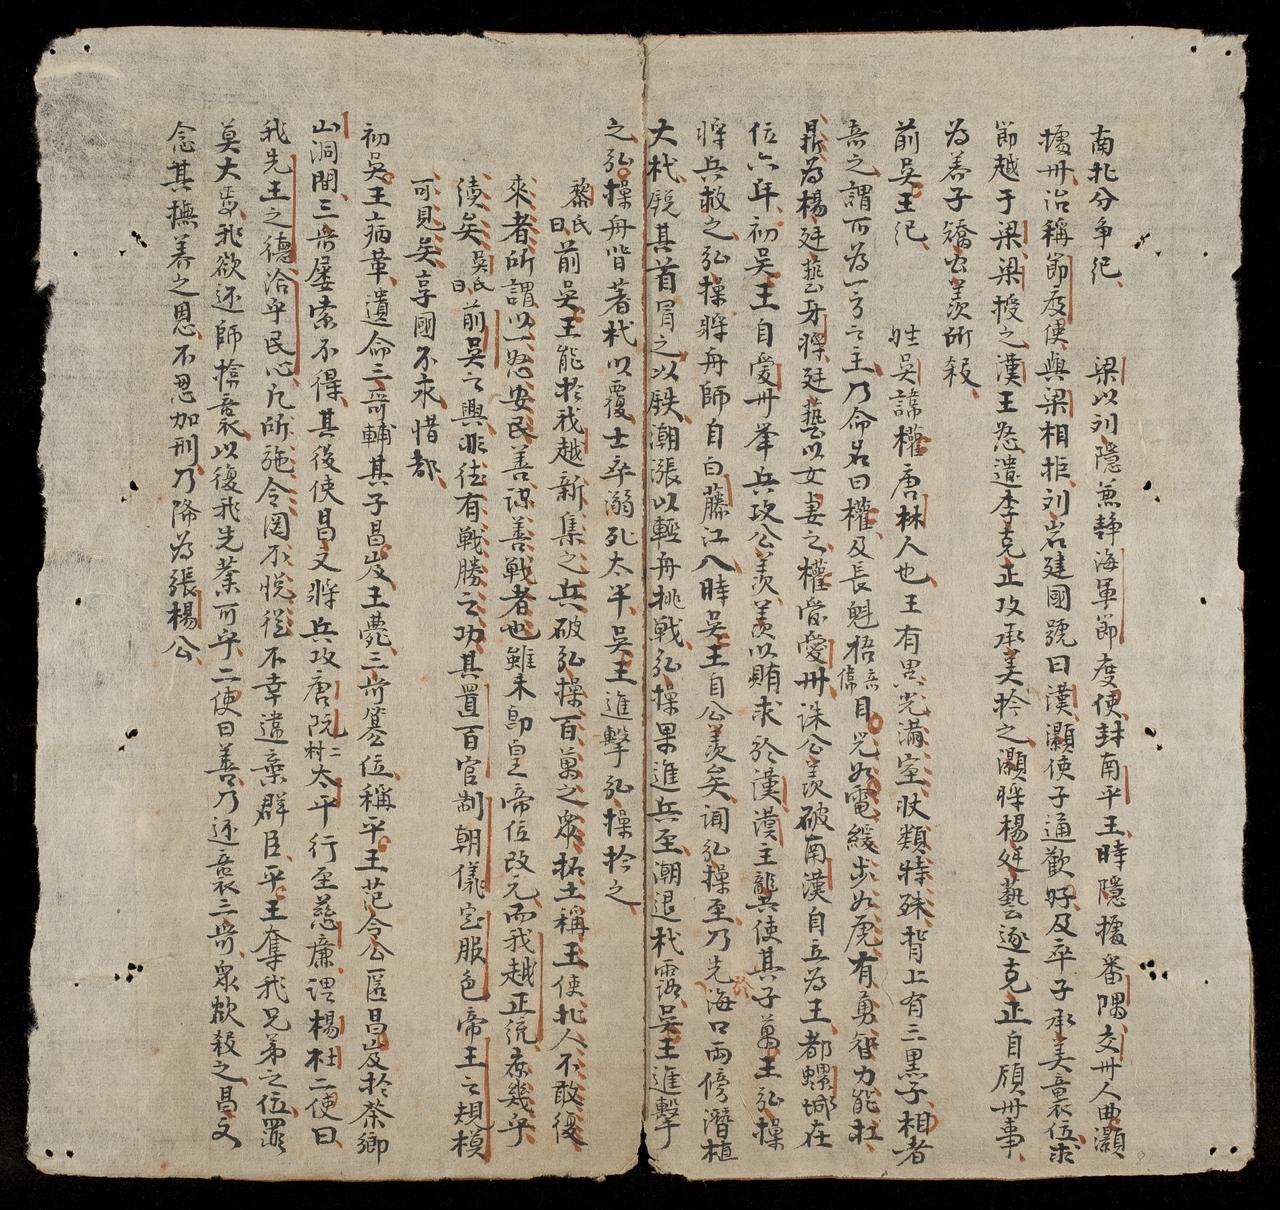 南北分争紀　梁以刘隱兼静海軍節度使封南平王時隱據番隅交州人曲灝
據州治稱節度使與梁相拒刘岩建國號曰漢灝使子通歡好及卒子承美襲位求
節越于梁梁授之漢王怒遣李克正攻承美於之灝將楊廷藝逐克正自領州事
為養子矯公羨所殺
前吴王紀　姓吴諱權唐林人也王有異光滿室狀類特殊背上有三黒子相者
竒之謂可為一方之主乃命名曰權及長魁梧竒偉目光如電緩步如虎有勇智力能扛
鼎為楊廷藝牙將廷藝以女妻之權管愛州誅公羨破南漢自立為王都螺城在
位六年初吴王自愛州举兵攻公羨羨以賄求於漢漢主龑使其子萬王弘操
將兵救之弘操將舟師自白藤江入時吴王自公羨矣闻弘操至乃先於海口両傍潛植
大杙銳其首冒之以鉄潮漲以輕舟挑戦弘操果進兵至潮退杙露吴王進撃
之弘操舟皆著杙以覆士卒溺死太半吴王進撃弘操於之
黎氏曰前吴王能於我越新集之兵破弘操百萬之衆拓土稱王使北人不敢復
來者所謂以一怒安民善謀善戦者也雖未即皇帝位改元而我越正統庶幾乎
續矣吴氏曰前吴之興非徒有戦勝之功其置百官制朝儀定服色帝王之規模
可見矣享國不永惜哉
初吴王病革遺命三哥輔其子昌岌及王薨三哥簒公位稱平王范令公匿昌岌於茶鄉
山洞間三哥屡索不得其後使昌文將兵攻唐阮二村太平行至慈廉謂楊杜二使曰
我先王之德洽乎民心凡所施令罔不悦從不幸違棄群臣平王奪我兄弟之位罪
莫大焉我欲还師搶襲以復我先業可乎二使曰善乃还襲三哥衆欲殺之昌文
念其撫養之恩不忍加刑乃降為張楊公